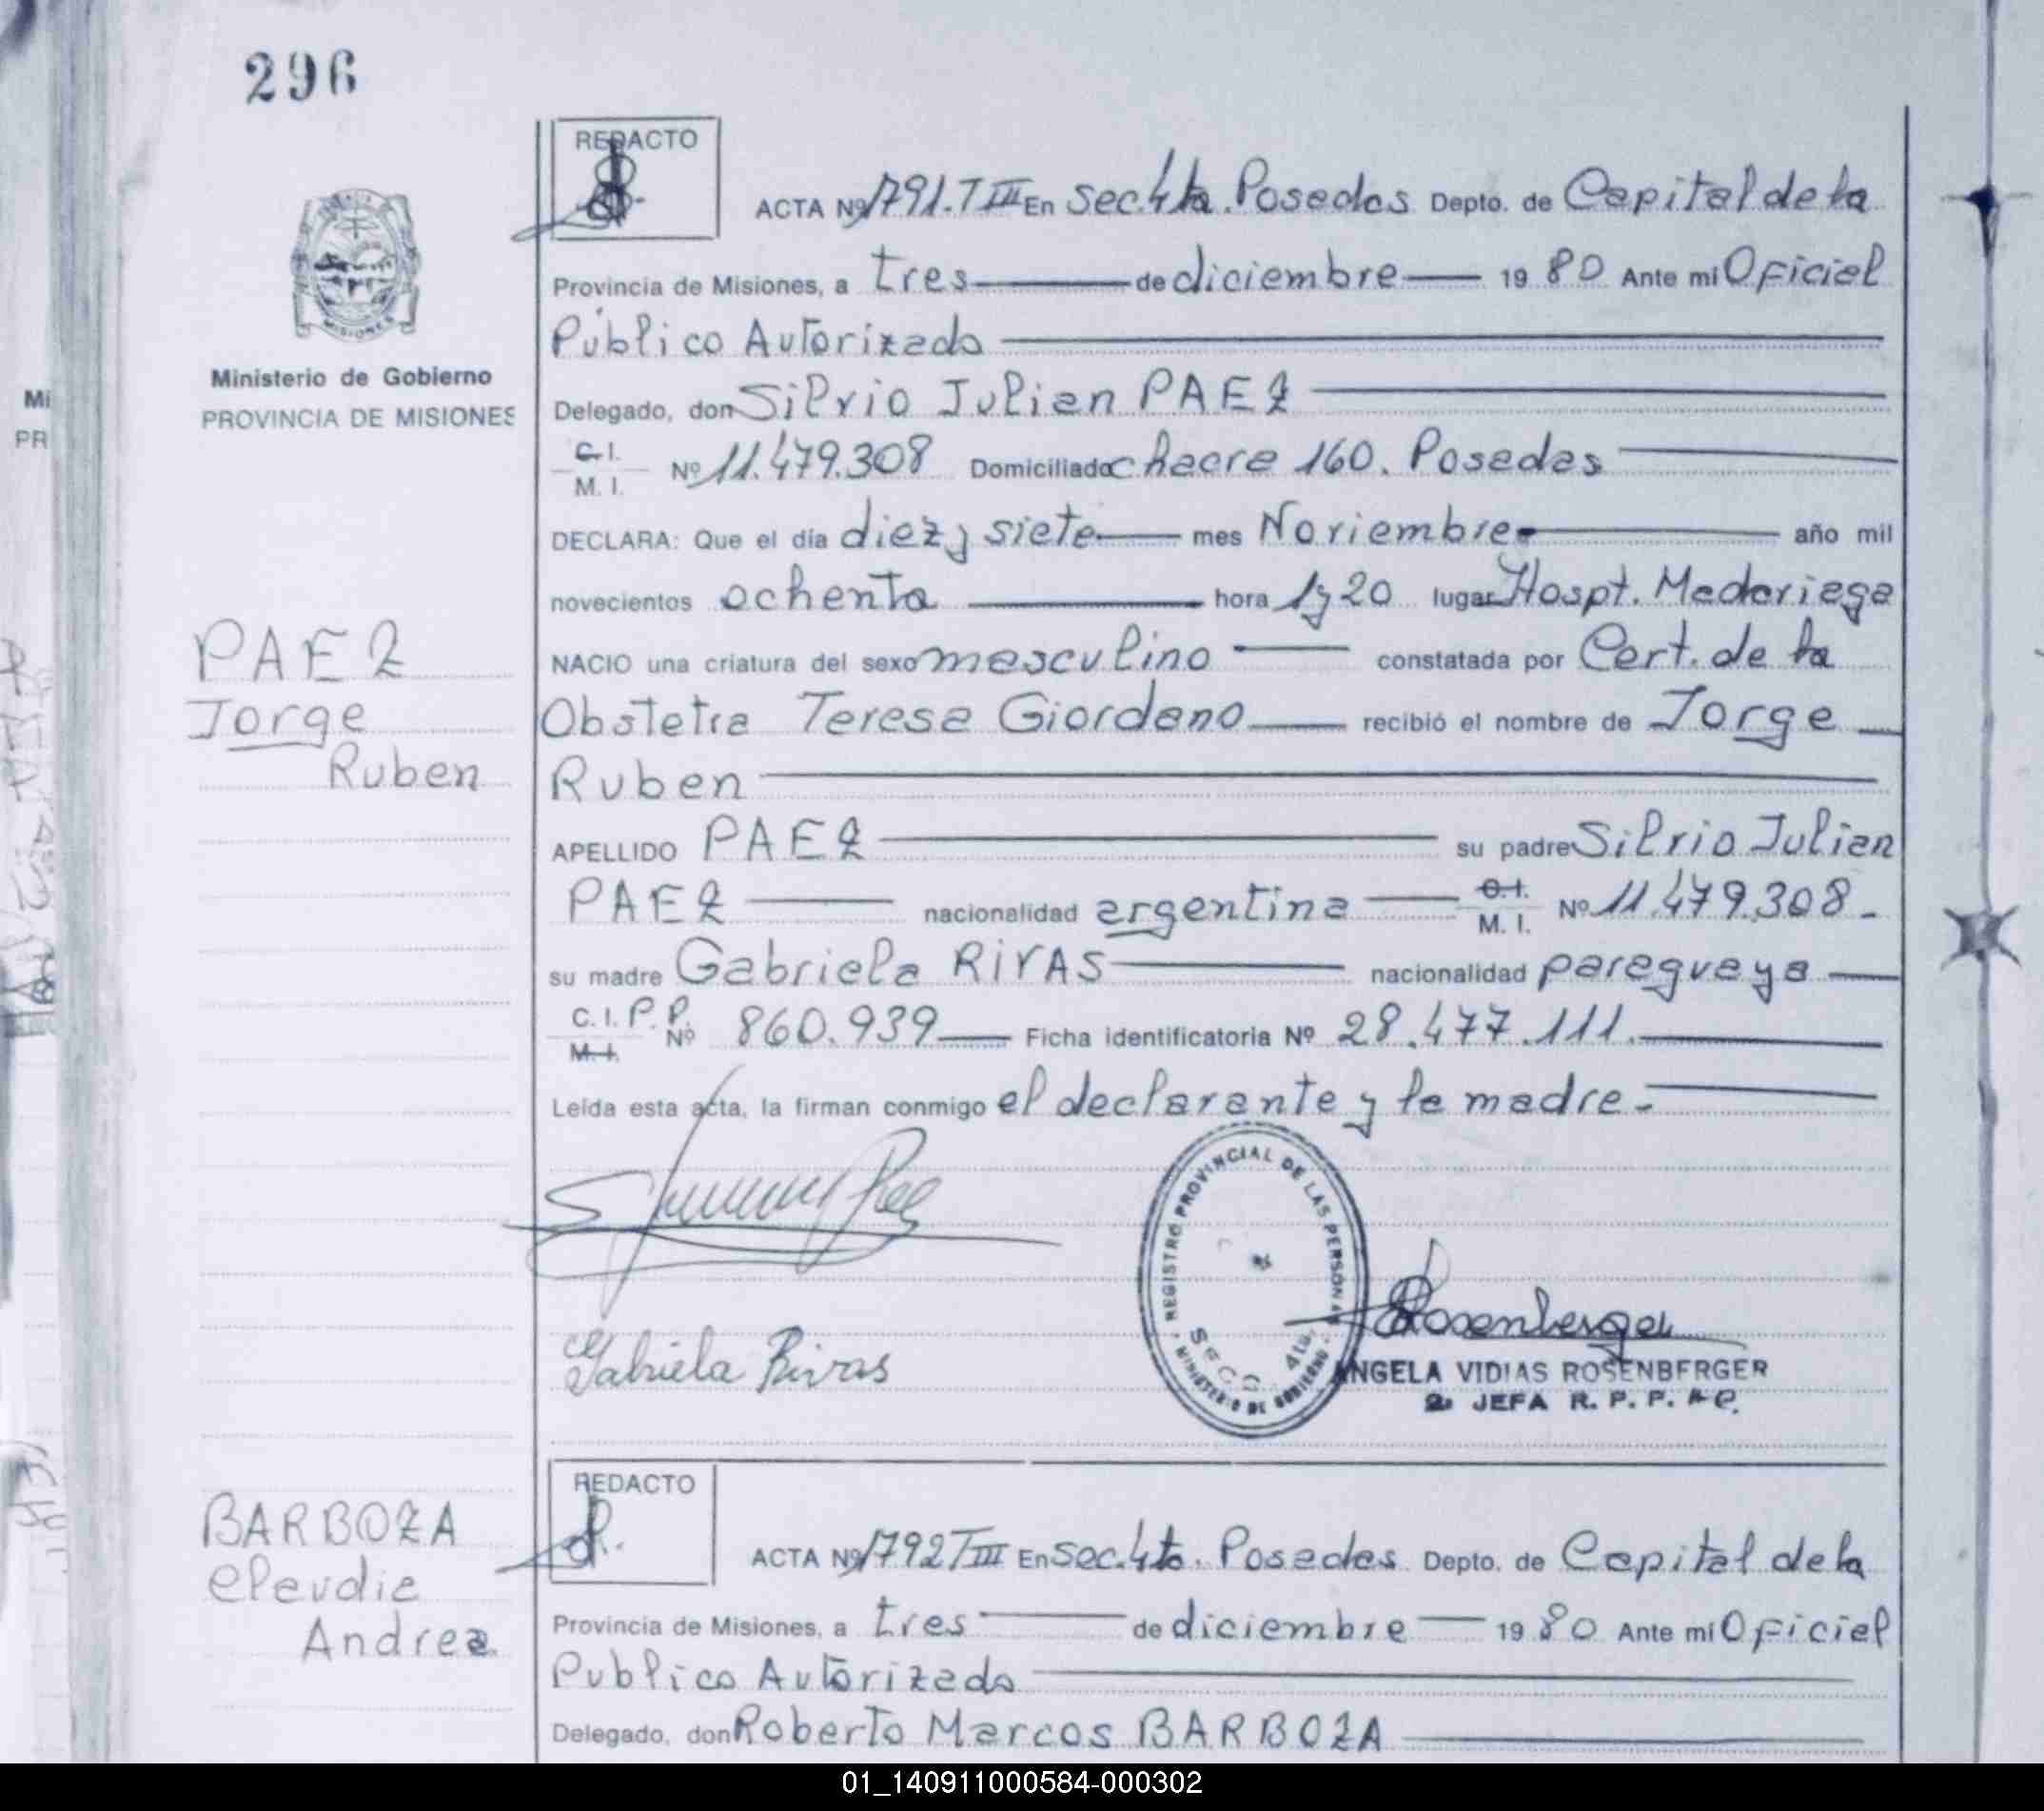 296
REDACTO
ACTA Nº 1791. T III En Sec. 4ta. Posadas Depto. de Capital de la
Provincia de Misiones, a tres de diciembre 19 80 Ante mi Oficial
Público Autorizado
Delegado, don Silvio Julian PAEZ
C.I.
M. I. Nº 11.479.308 Domiciliado chacra 160. Posadas
DECLARA: Que el día diez y siete mes Noviembre año mil
novecientos ochenta hora 1y20 lugar Hospt. Madariaga
NACIO una criatura del sexo masculino constatada por Cert. de la
Obstetra Teresa Giordano recibió el nombre de Jorge
Ruben
APELLIDO PAEZ su padre Silvio Julian
PAEZ nacionalidad argentina C.I. M. I. Nº 11.479.308-
su madre Gabriela RIVAS nacionalidad paraguaya
C. I. P. P.
M. I. Nº 860.939 Ficha identificatoria Nº 28.477.111.
Leída esta acta, la firman conmigo el declarante y la madre-
Gabriela Rivas
REGISTRO PROVINCIAL DE LAS PERSONAS
SECC 4ta.
MINISTERIO DE GOBIERNO
Rosenberger
ANGELA VIDIAS ROSENBERGER
2ª JEFA R. P. P.
Ministerio de Gobierno
PROVINCIA DE MISIONES
MISIONES
PAEZ
Jorge
Ruben
Mi
PR
BARBOZA
Claudia
Andrea
REDACTO
ACTA Nº 1792 T III En Sec. 4ta. Posadas Depto. de Capital de la
Provincia de Misiones, a tres de diciembre 19 80 Ante mi Oficial
Publico Autorizado
Delegado, don Roberto Marcos BARBOZA
01_140911000584-000302